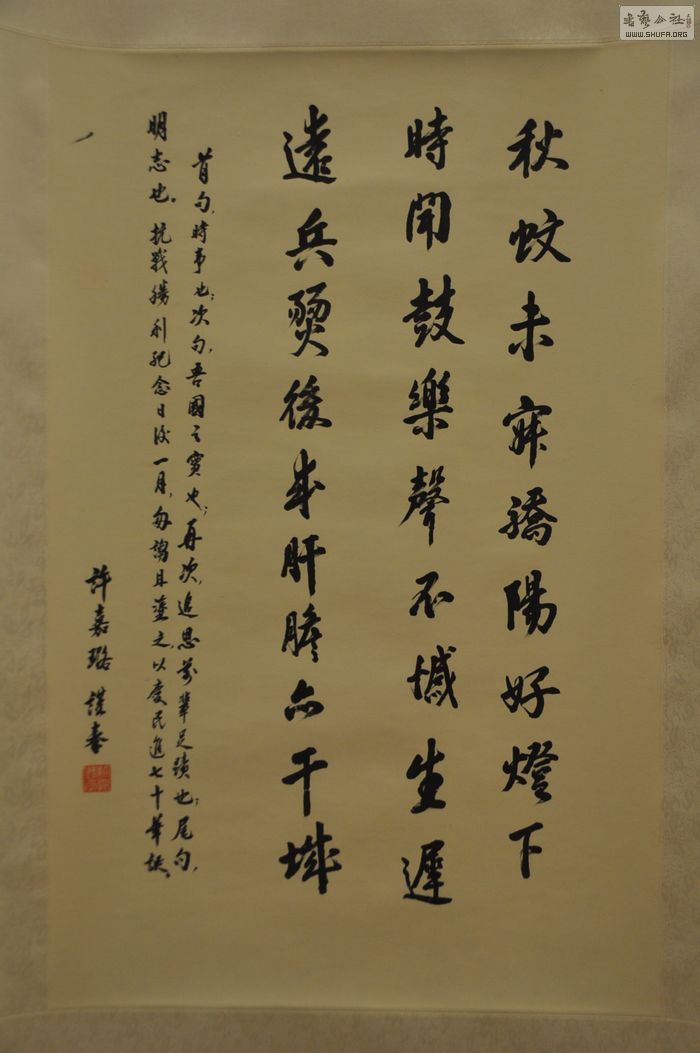 秋蚊未寐驕陽好燈下
時聞鼓樂聲不憾生遲
遠兵燹後成肝膽亦干城
首句,時事也;次句,吾國之寶也;再次,追思前輩足蹟也;尾句,
明志也。抗戰勝利紀念日後一月,匆謅且塗之,以慶民進七十華誕。
許嘉璐謹奉
書藝公社
WWW.SHUFA.ORG